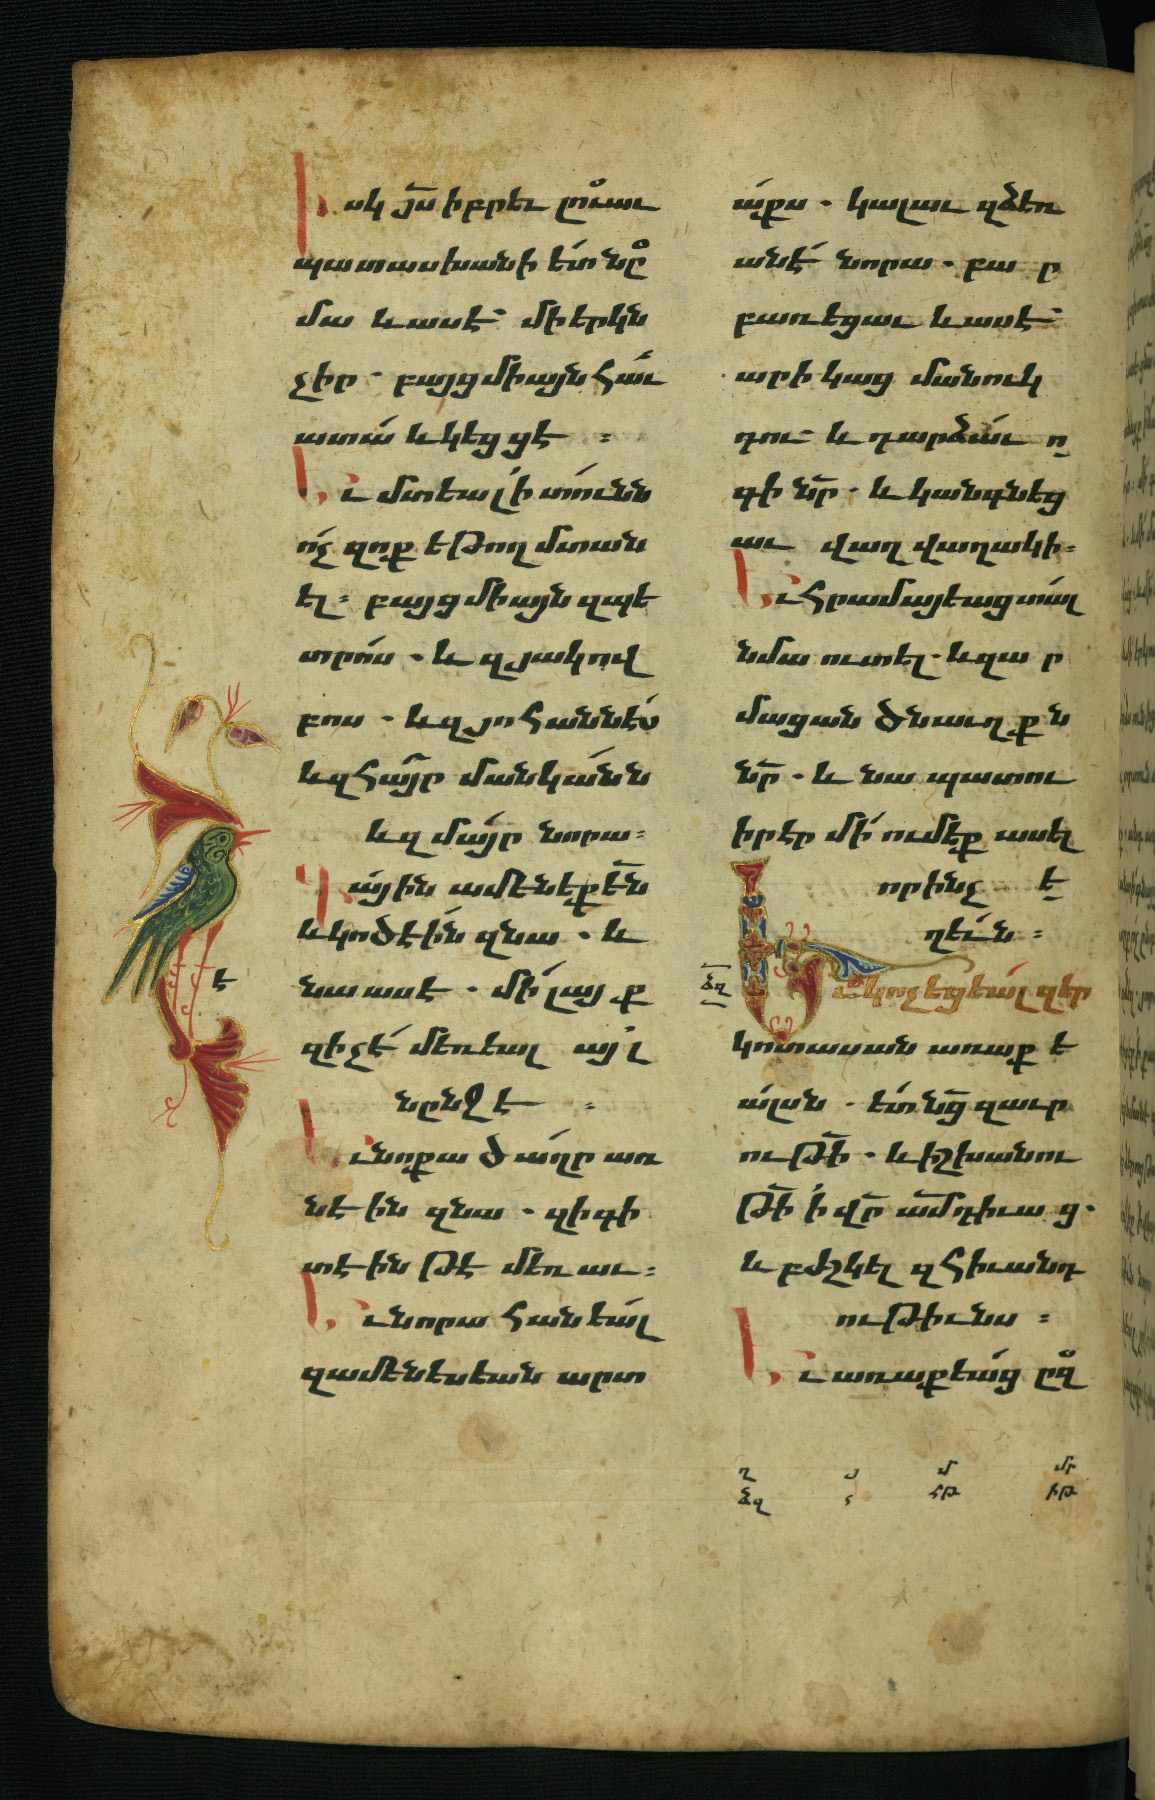 Իսկ յս իբրեւ լուաւ
պատասխանի ետ նը
մա և ասէ՝ մի երկն
չիր · բայց միայն հաւ
ատա և կեցցէ ։
Եւ մտեալ ի տունն
ոչ զոք եթող մտան
ել ։ բայց միայն զպե
տրոս · և զյակով
բոս · և զյոհաննէս
և զհայր մանկանն
և զմայր նորա ։
Լային ամենեքեն
և կոծէին զնա · և
նա ասէ · մի լայք
զի չէ մեռեալ այլ
նընջէ ։
Եւ նոքա ծաղր առ
նէին զնա · զի գի
տէին թէ մեռաւ ։
Եւ նորա հանեալ
զամենեսեան արտ
է
աքս · կալաւ զձեռ
անէ նորա · բա ր
բառեցաւ և ասէ՝
արի կաց մանուկ
դու · և դարձաւ ո
գի նր · և կանգնեց
աւ վաղվաղակի ։
Եւ հրամայեաց տալ
նմա ուտել · և զա ր
մացան ծնաւղքն
նր · և նա պատու
իրեր մի ումեք ասել
որինչ ե
ղեւն ։
ձղ
Եւ կոչեցեալ զեր
կոտասան առաքե
ալսն · ետ նց զաւր
ութի · և իշխանու
թի ի վր ամ դիւաց ·
և բժշկել զհիւանդ
ութիւնս ։
Եւ առաքեաց ընզ